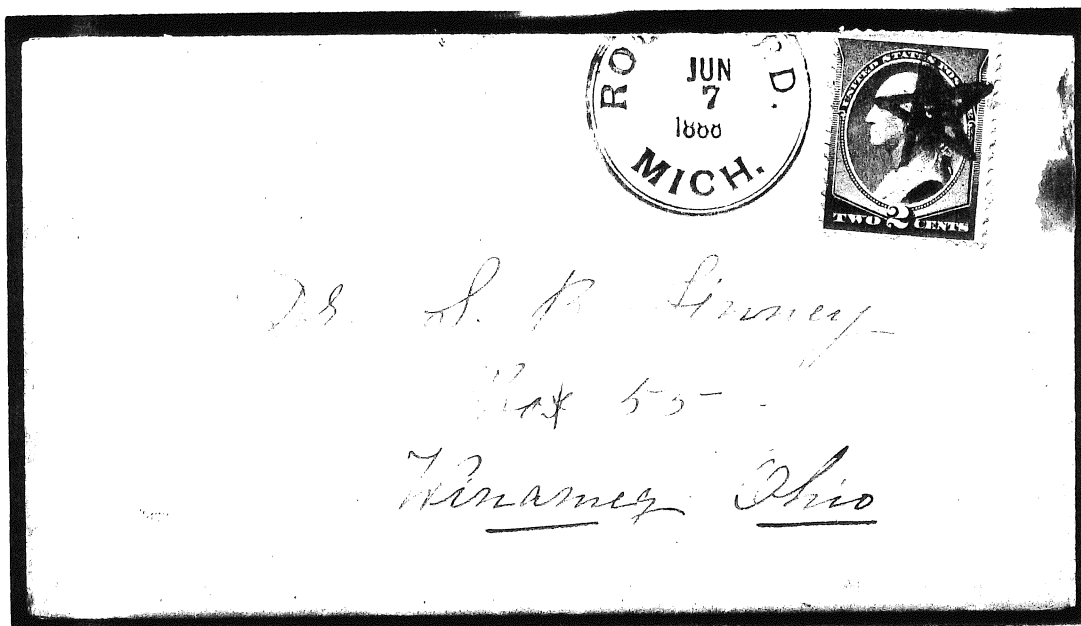 JUN
7
1888
MICH.
UNITED STATES
TWO 2 CENTS
Dr. S. P. Linney
Box 55
Winameg Ohio